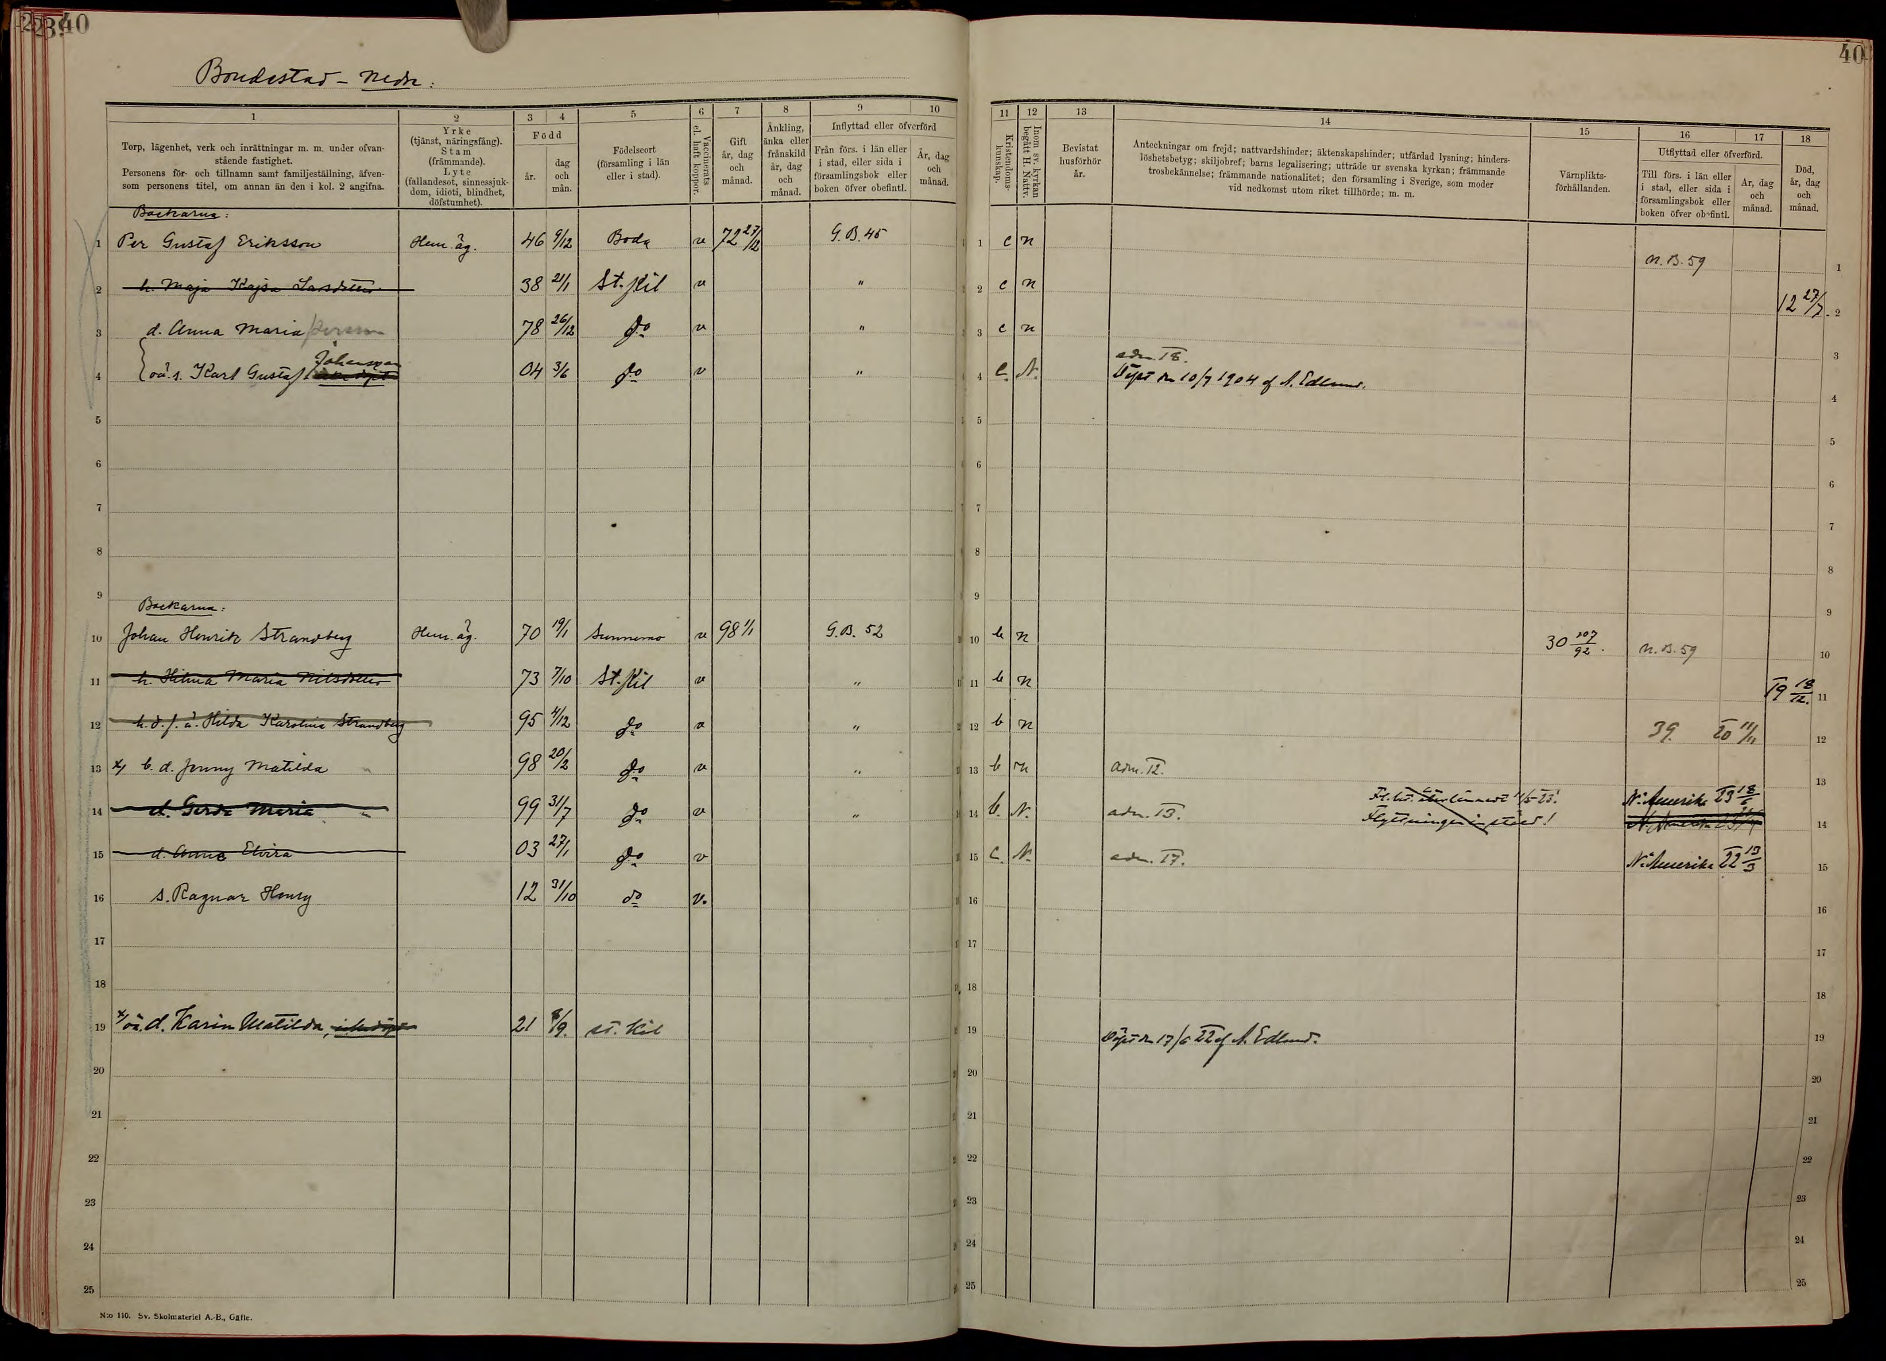 40
Bondestad - Nedre:
1 2 3 4 5 6 7 8 9 10
Torp, lägenhet, verk och inrättningar m. m. under ofvan-
stående fastighet.
Personens för- och tillnamn samt familjeställning, äfven-
som personens titel, om annan än den i kol. 2 angifna.
Yrke
(tjänst, näringsfång).
Stam
(främmande).
Lyte
(fallandesot, sinnessjuk-
dom, idioti, blindhet,
döfstumhet).
Född
år.
dag
och
mån.
Födelseort
(församling i län
eller i stad).
Vaccinerats
el. haft koppor.
Gift
år, dag
och
månad.
Änkling,
änka eller
frånskild
år, dag
och
månad.
Inflyttad eller öfverförd
Från förs. i län eller
i stad, eller sida i
församlingsbok eller
boken öfver obefintl.
År, dag
och
månad.
Backarna:
1 Per Gustaf Eriksson Hem. äg. 46 9/12 Boda v 72 27/12 G.B. 45
2 h. Maja Kajsa Larsdotter 38 21/1 St. Kil v "
3 d. Anna Maria 78 26/12 do v "
Johansson
4 oä. s. Karl Gustaf 04 3/6 do v "
5
6
7
8
9
Backarna:
10 Johan Henrik Strandberg Hem. äg. 70 19/1 Sunnemo v 98 1/1 G.B. 52
11 h. Hilma Maria Nilsdotter 73 7/10 St. Kil v "
12 h. d. f. ä. Hilda Karolina Strandberg 95 4/12 do v "
13 x/ b. d. Jenny Matilda 98 20/2 do v "
14 d. Gerda Maria 99 31/7 do v "
15 d. Anna Elvira 03 27/1 do v
16 s. Ragnar Henry 12 31/10 do v.
17
18
19 x/ oä. d. Karin Matilda, 21 8/9. St. Kil
20
21
22
23
24
25
N:o 110. Sv. Skolmateriel A.-B., Gäfle.
40
11 12 13 14 15 16 17 18
Kristendoms-
kunskap.
Inom sv. kyrkan
begått H. Nattv.
Bevistat
husförhör
år.
Anteckningar om frejd; nattvardshinder; äktenskapshinder; utfärdad lysning; hinders-
löshetsbetyg; skiljobref; barns legalisering; utträde ur svenska kyrkan; främmande
trosbekännelse; främmande nationalitet; den församling i Sverige, som moder
vid nedkomst utom riket tillhörde; m. m.
Värnplikts-
förhållanden.
Utflyttad eller öfverförd.
Till förs. i län eller
i stad, eller sida i
församlingsbok eller
boken öfver obefintl.
År, dag
och
månad.
Död,
år, dag
och
månad.
1 c n N.B. 59 1
2 c n 12 27/7. 2
3 c n 3
adm. 18.
4 c. N. Döpt den 10/7 1904 af A. Edlund. 4
5 5
6 6
7 7
8 8
9 9
10 b n 30 207/92. N.B. 59 10
11 b n 19 18/12. 11
12 b n 39. 20 11/11 12
13 b n adm. 12. 13
14 b. N. adm. 13. Fl. bet. återlämnadt 11/5 23! N. Amerika 23 18/6
Flyttningen inställd! 14
15 c. N. adm. 17. N. Amerika 22 13/3 15
16 16
17 17
18 18
19 Döpt den 17/6 22 af A. Edlund. 19
20 20
21 21
22 22
23 23
24 24
25 25